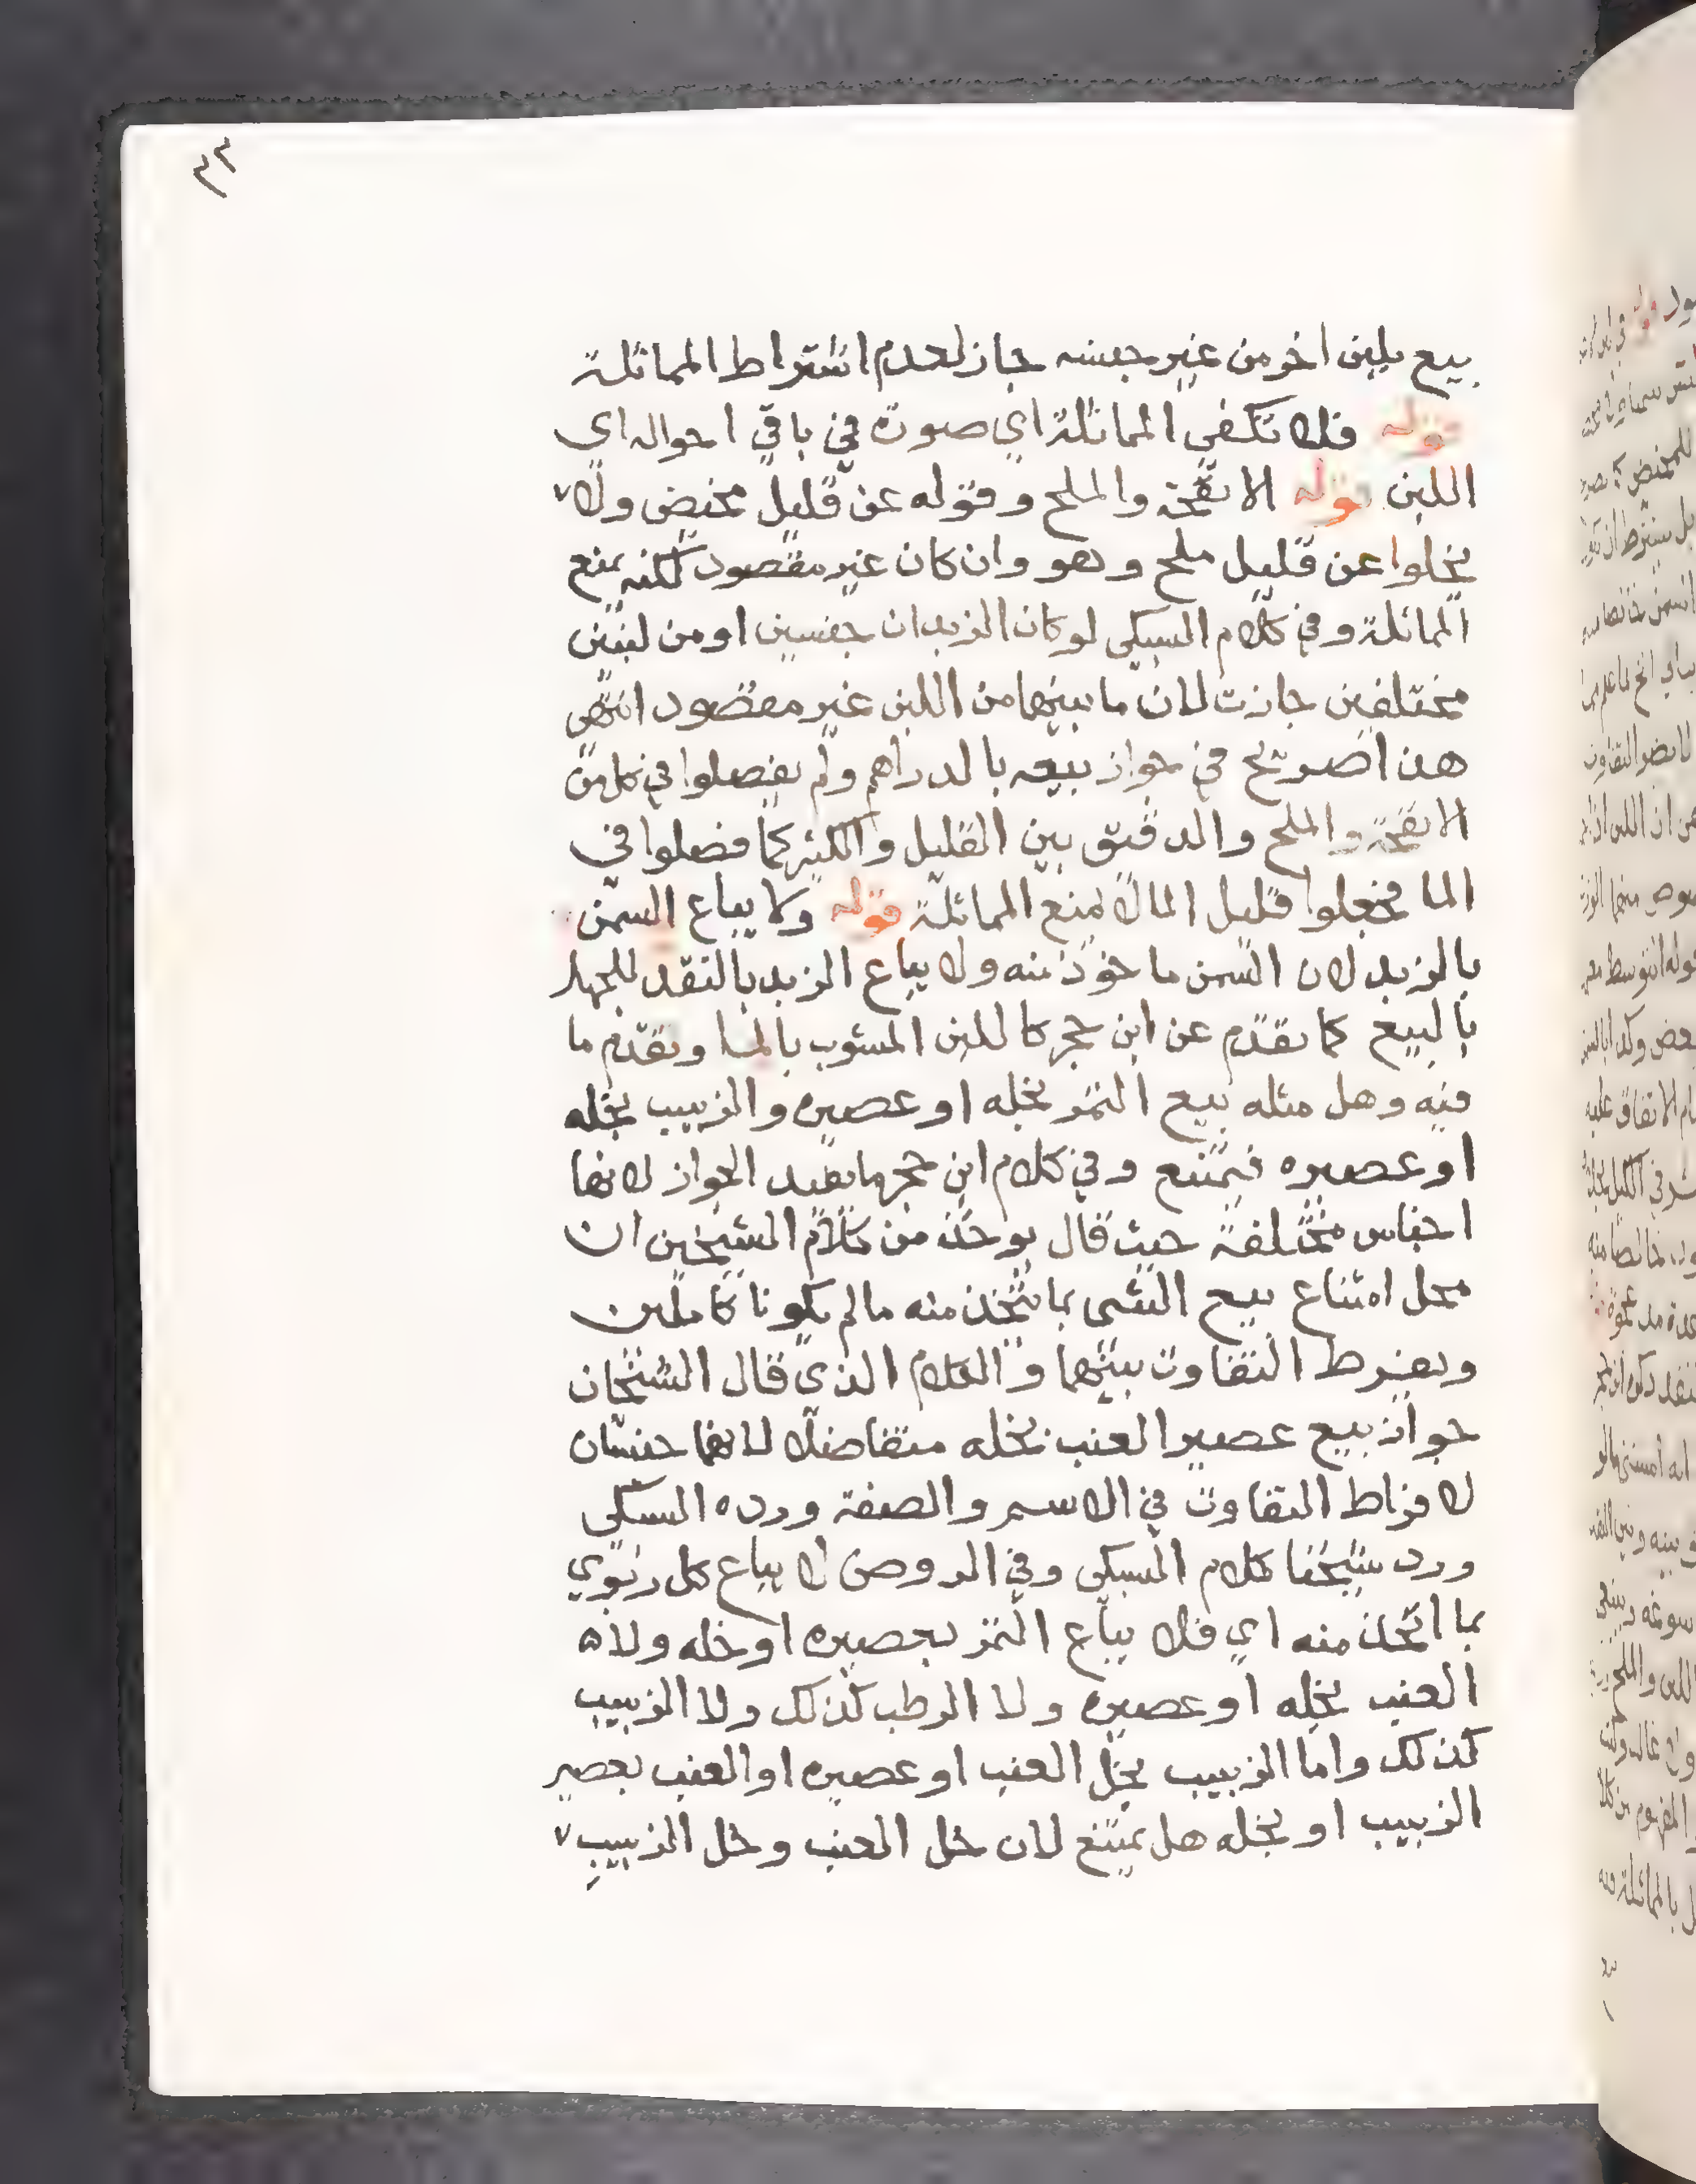 ٣٣
بيع بلبن اخر من غير جنسه جاز لعدم اشتراط المماثلة
قوله فلا تكفي المماثلة اي صوته في باقي احواله اي
اللبن قوله الانفحة والملح وقوله عن قليل مخيض ولا
يخلوا عن قليل ملح وهو وان كان غير مقصود لكنه يمنع
المماثلة وفي كلام السبكى لو كان الزبدان جنسين او من لبنين
مختلفين جازت لان ما بينهما من اللبن غير مقصود انتهى
هذا صريح في جواز بيعه بالدراهم ولم يفصلوا في كل من
الانفحة والملح والدقيق بين القليل والكثير كما فصلوا في
الما فجعلوا قليل الما لا يمنع المماثلة قوله ولا يباع السمن
بالزبد لان السمن ماخوذ منه ولا يباع الزبد بالنقد للجهل
بالمبيع كما تقدم عن ابن حجر كاللبن المشوب بالما وتقدم ما
فيه وهل مثله بيع التمر بخله او عصيره والزبيب بخله
او عصيره فيمتنع وفي كلام ابن حجر ما يفيد الجواز لانها
اجناس مختلفة حيث قال يوخذ من كلام الشيخين ان
محل امتناع بيع الشى بما يتخذ منه ما لم يكونا كاملين
ويفرط التفاوت بينهما والكلام الذي قال الشيخان
جواز بيع عصير العنب بخله متفاضلا لانهما جنسان
لافراط التفاوت في الاسم والصفة ورده السبكى
ورد شيخنا كلام السبكى وفي الروض لا يباع كل ربوي
بما اتخذ منه اي فلا يباع التمر بعصيره او خله ولا
العنب بخله او عصيره ولا الرطب كذلك ولا الزبيب
كذلك واما الزبيب بخل العنب او عصيره او العنب بعصير
الزبيب او بخله هل يمتنع لان خل العنب وخل الزبيب